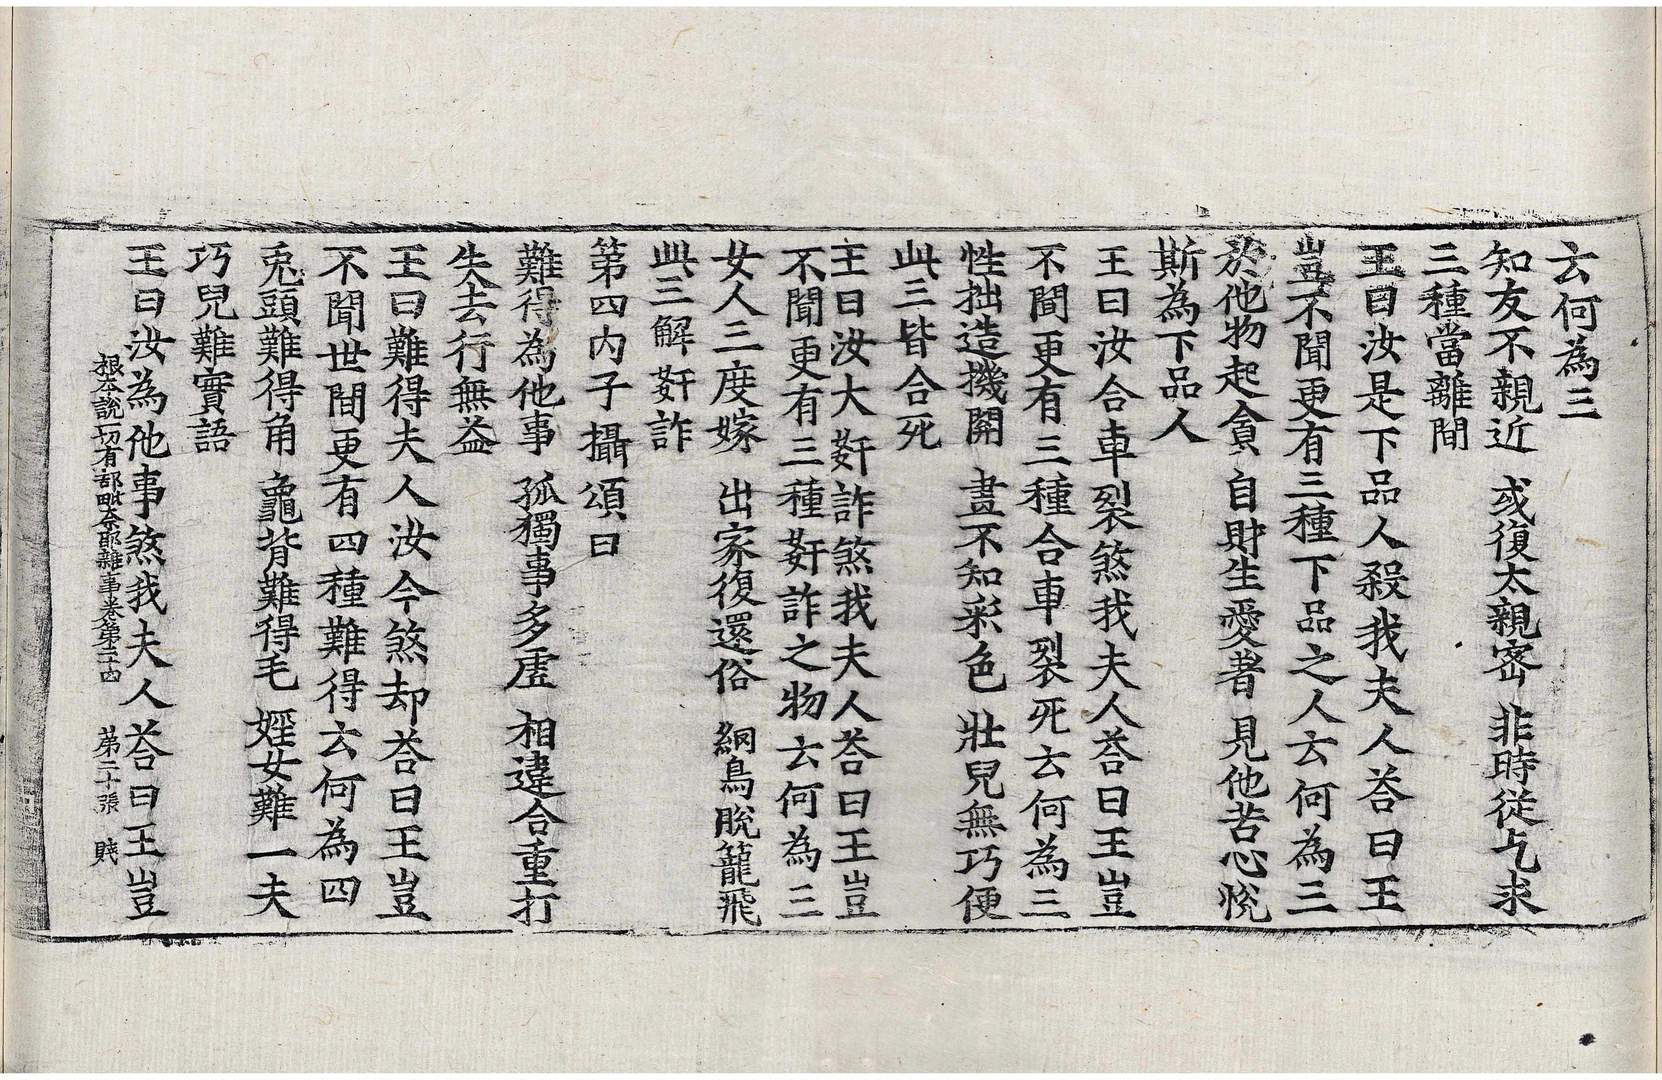 云何為三
知友不親近　或復太親密　非時從乞求
三種當離間
王曰汝是下品人殺我夫人荅曰王
豈不聞更有三種下品之人云何為三
於他物起貪　自財生愛著　見他苦心悅
斯為下品人
王曰汝合車裂煞我夫人荅曰王豈
不聞更有三種合車裂死云何為三
性拙造機關　畫不知彩色　壯兒無巧便
此三皆合死
王曰汝大姧詐煞我夫人荅曰王豈
不聞更有三種姧詐之物云何為三
女人三度嫁　出家復還俗　網鳥脫籠飛
此三解姧詐
第四內子攝頌曰
難得為他事　孤獨事多虛　相違合重打
失去行無益
王曰難得夫人汝今煞却荅曰王豈
不聞世間更有四種難得云何為四
兎頭難得角　龜背難得毛　婬女難一夫
巧兒難實語
王曰汝為他事煞我夫人荅曰王豈
根本說一切有部毗奈耶雜事卷第二十四　第二十張　賤